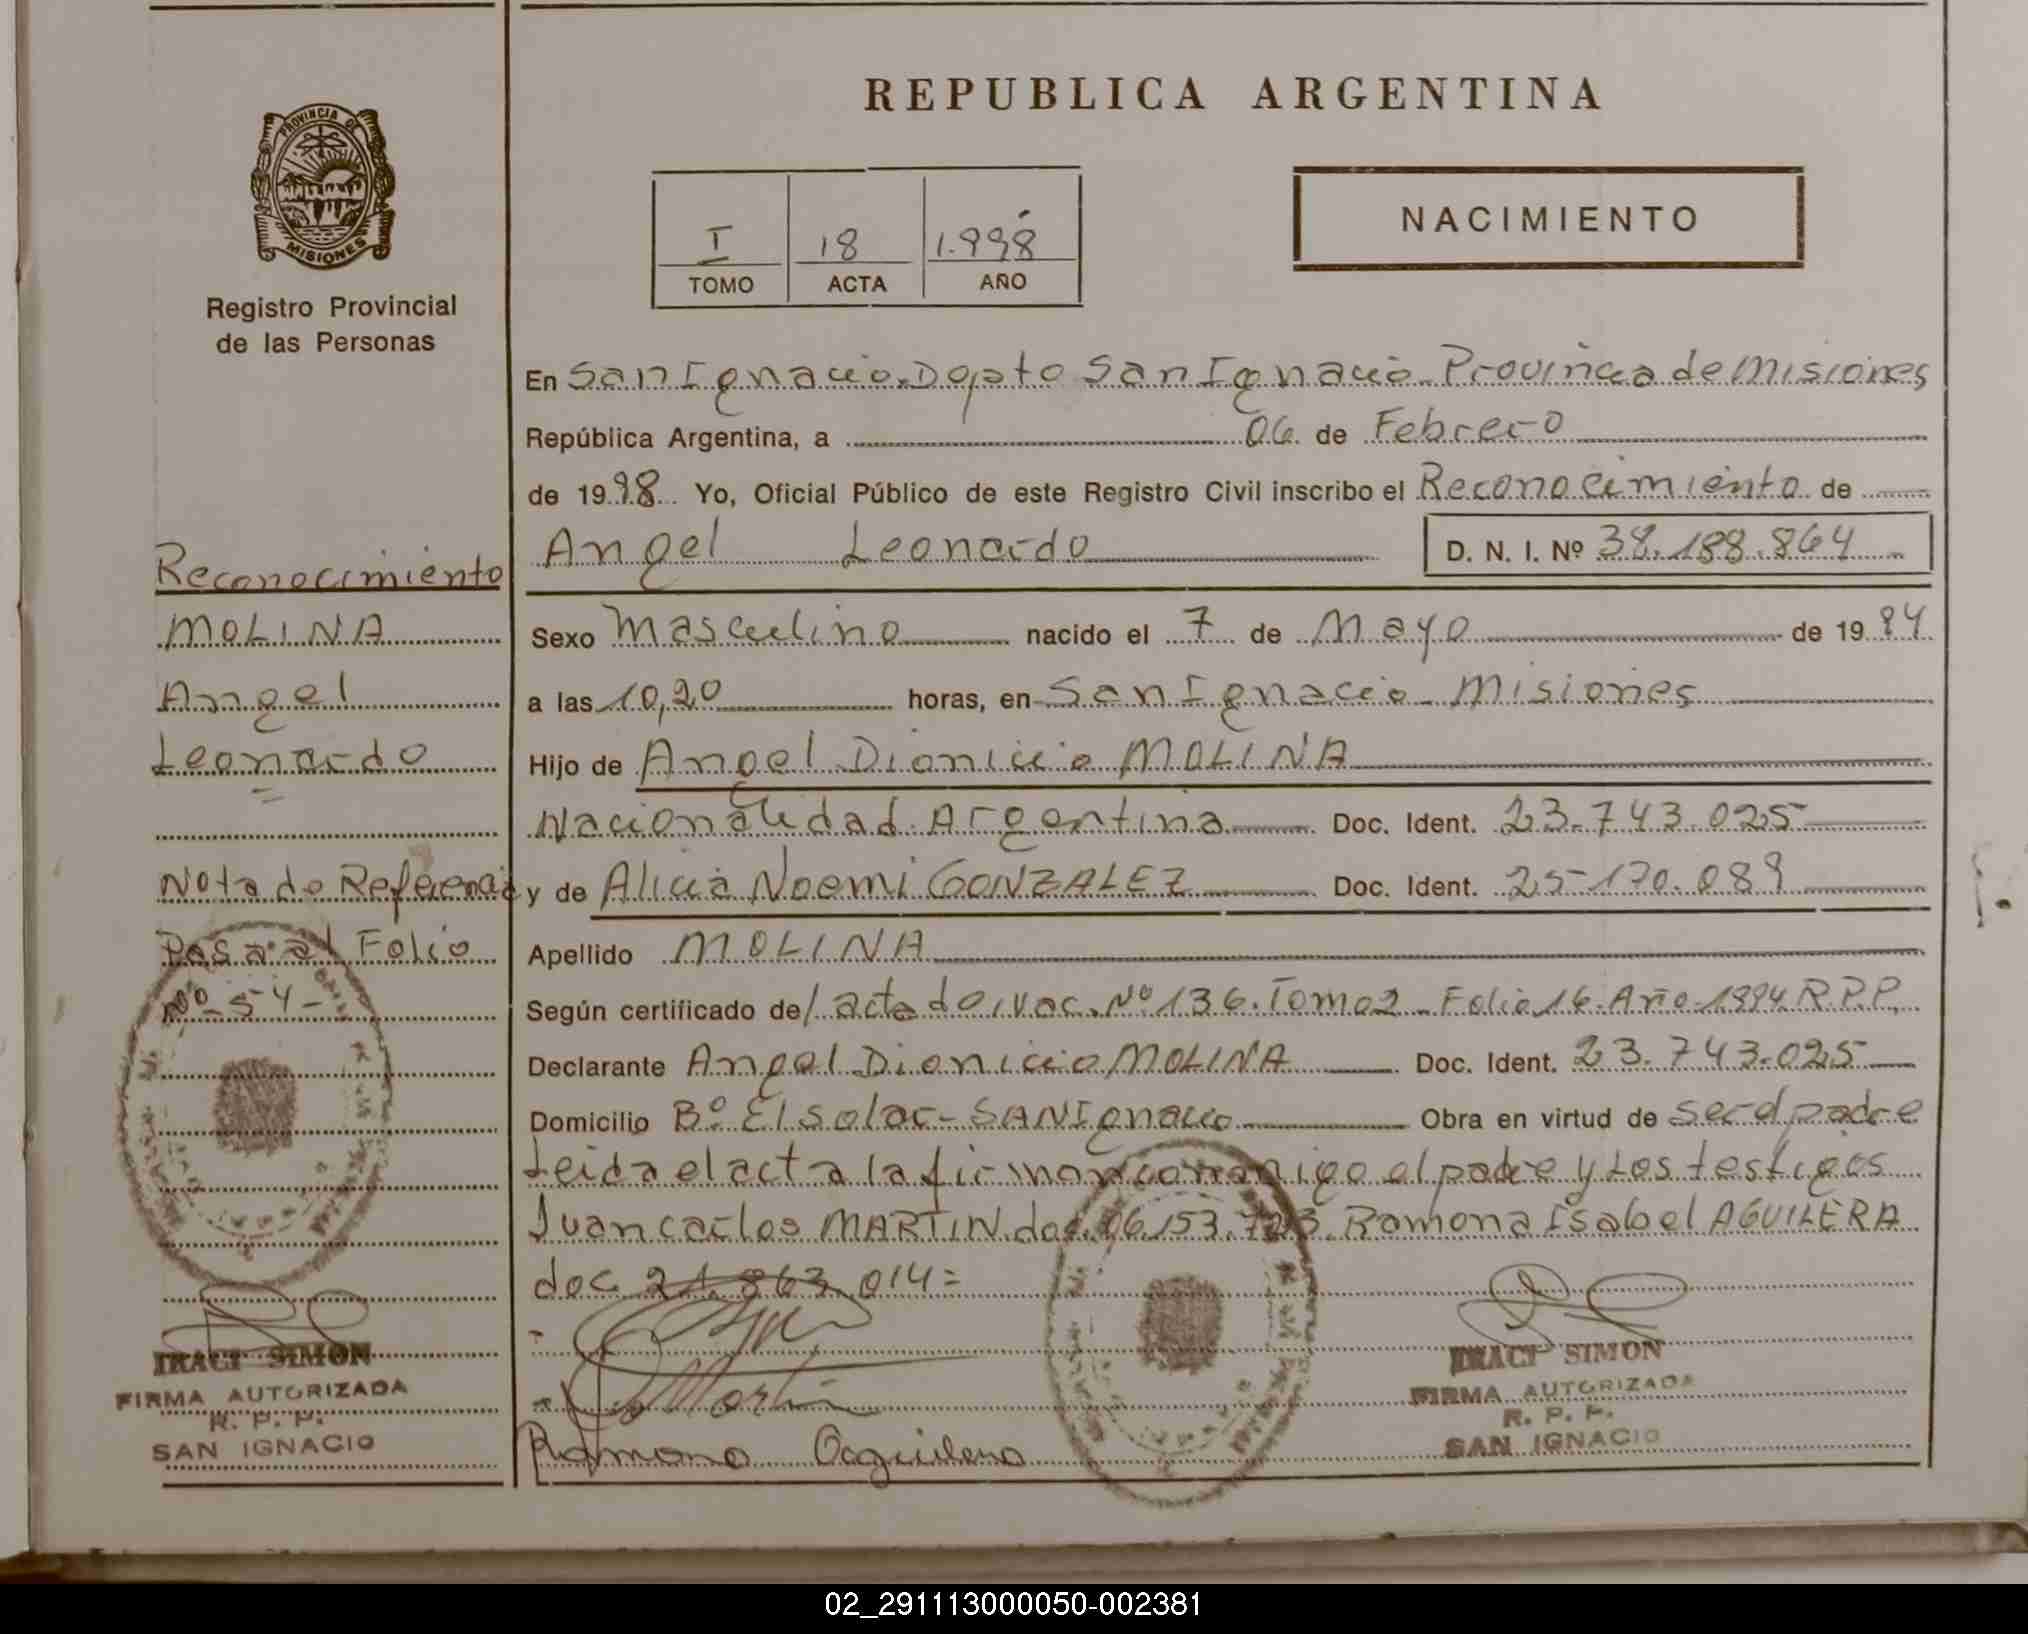 REPUBLICA ARGENTINA
PROVINCIA DE
MISIONES
Registro Provincial
de las Personas
I 18 1.998
TOMO ACTA AÑO
NACIMIENTO
En San Ignacio. Dpto San Ignacio. Provincia de Misiones
República Argentina, a 06 de Febrero
de 1998 Yo, Oficial Público de este Registro Civil inscribo el Reconocimiento de
Angel Leonardo D. N. I. Nº 38.188.864
Sexo Masculino nacido el 7 de Mayo de 1994
a las 10,20 horas, en San Ignacio - Misiones
Hijo de Angel Dionicio MOLINA
Nacionalidad Argentina Doc. Ident. 23.743.025
y de Alicia Noemi GONZALEZ Doc. Ident. 25.170.089
Apellido MOLINA
Según certificado de acta de Nº 136. Tomo 2 - Folio 16. Año 1994. R.P.P.
Declarante Angel Dionicio MOLINA Doc. Ident. 23.743.025
Domicilio Bº El Solar - SAN Ignacio Obra en virtud de ser el padre
Leida el acta la firman conmigo el padre y Los testigos
Juan carlos MARTIN. doc. 06.153. Ramona Isabel AGUILERA
doc 21.863.014=
Martin
Ramona Aguilera
IRACI SIMON
FIRMA AUTORIZADA
R. P. P.
SAN IGNACIO
Reconocimiento
MOLINA
Angel
Leonardo
Nota de Referencia
Pasa al Folio
Nº - 54 -
IRACI SIMON
FIRMA AUTORIZADA
R. P. P.
SAN IGNACIO
02_291113000050-002381